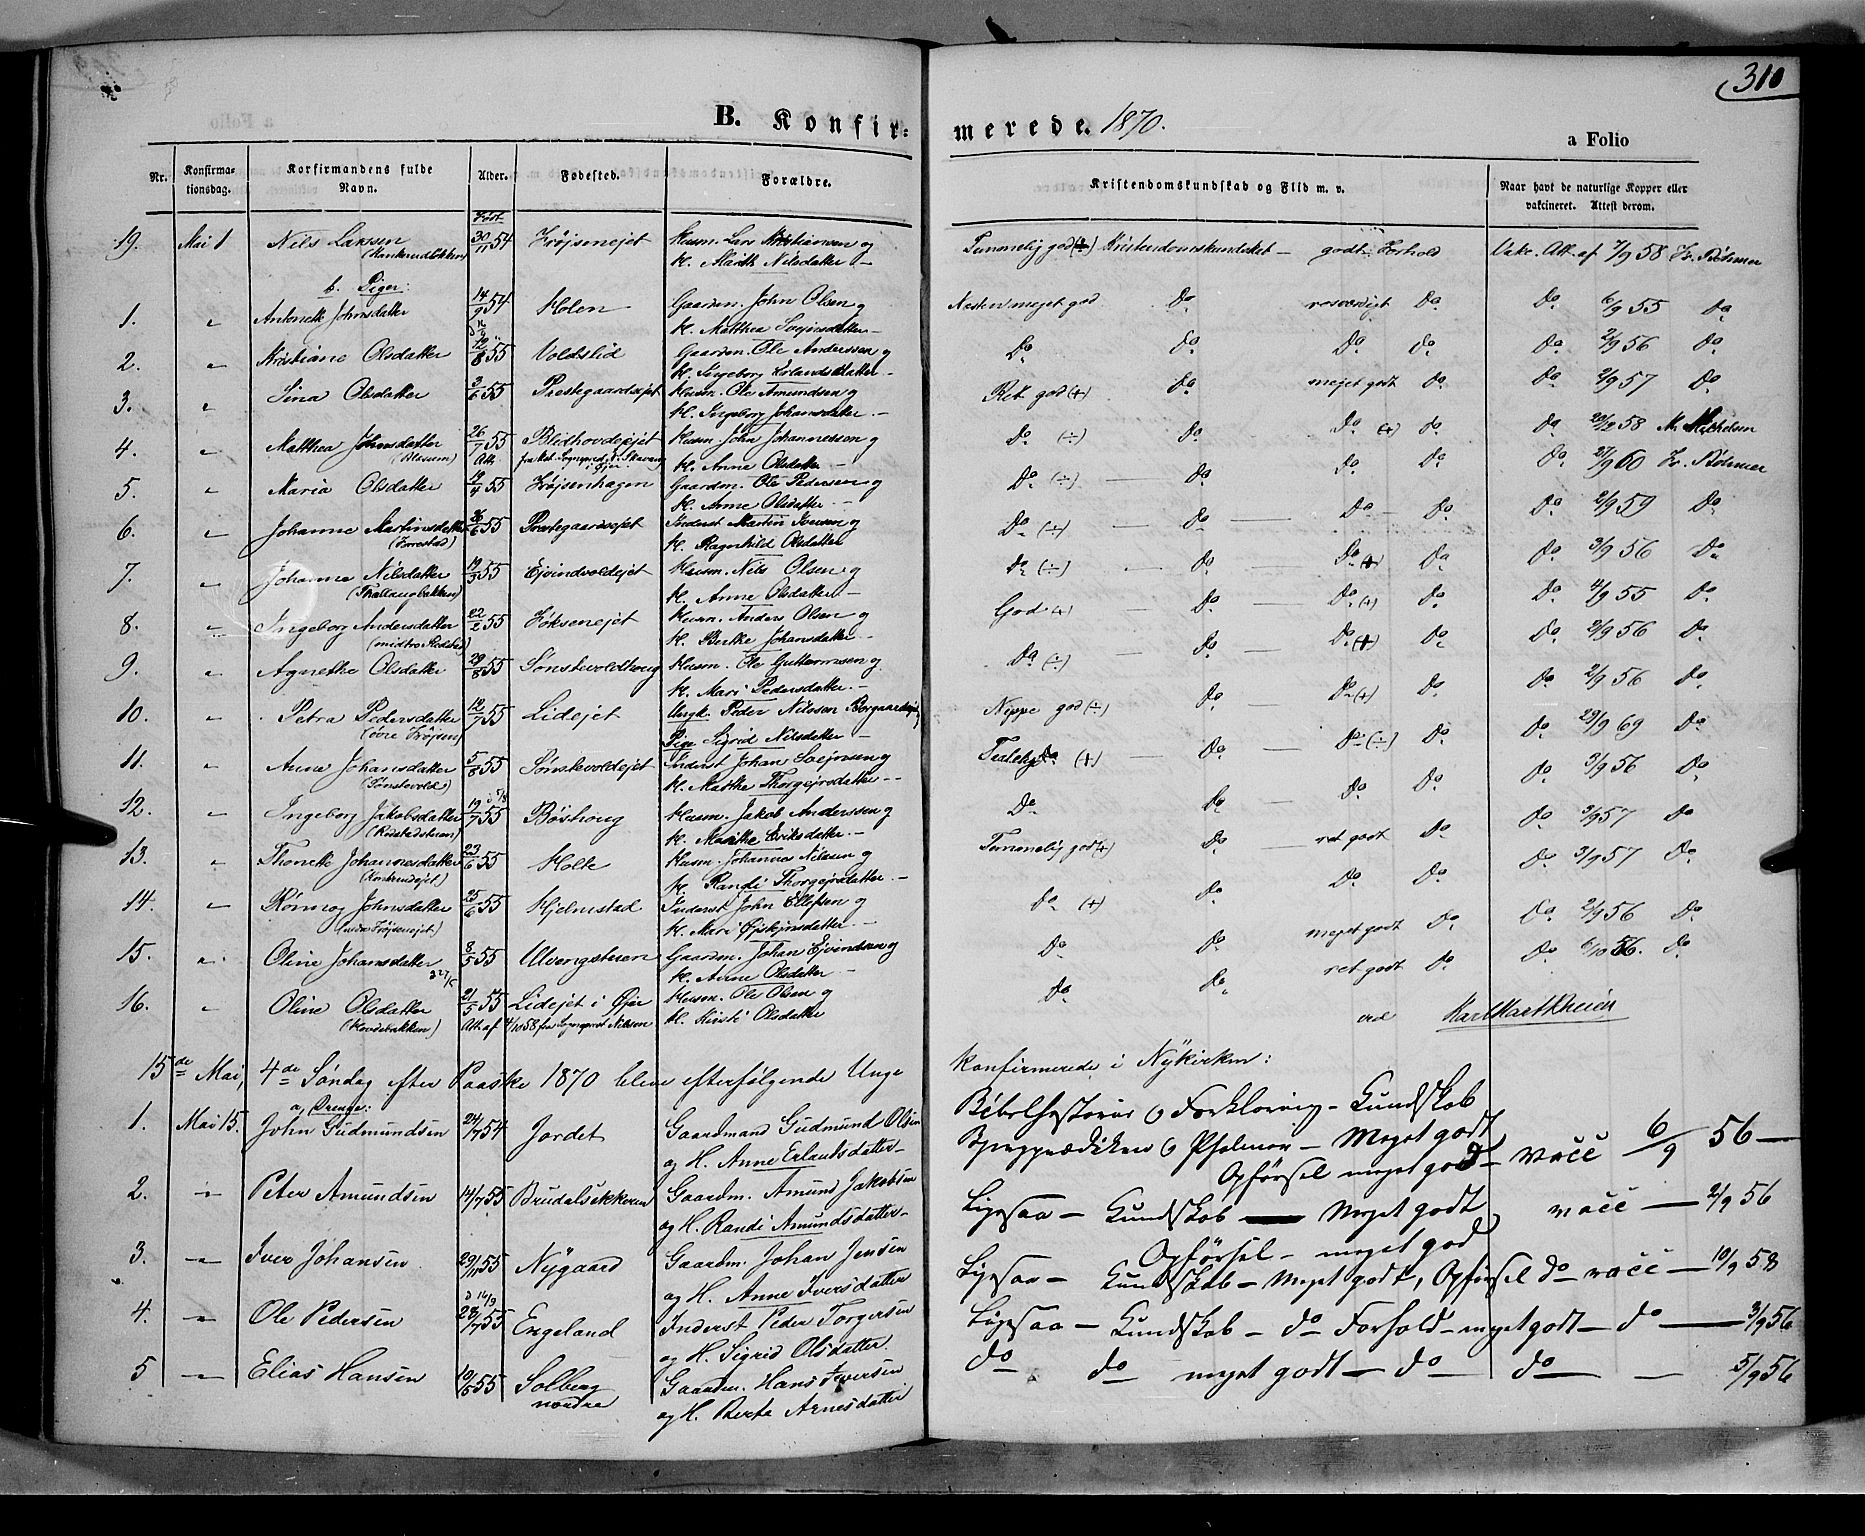 310
B. Konfir: merede. 1870.
a Folio
Nr. Konfirma-tionsdag. Konfirmandens fulde Navn. Alder. Fødested. Forældre. Kristendomskundskab og Flid m. v. Naar havt de naturlige Kopper eller vakcineret. Attest derom.
Født
19. Mai 1 Nils Larssen 30/11 54 Frøjsenejet Husm. Lars Kristiansen og Temmelig god (+) Kristendomskundskab – godt Forhold Vakc. Att. af 7/9 58 Fr. Bøhmer
K. Marith Nilsdatter –
b. Piger:
1. " Antonette Johnsdatter 14/9 54 Holen Gaardm. John Olsen og Næsten meget god Do rosværdigt Do Do 6/9 55 Do
K. Matthea Svejnsdatter –
2. " Kristiane Olsdatter 12/8 55 Voldslid Gaardm. Ole Anderssen og Do Do Do Do Do 2/9 56 Do
K. Ingeborg Erlandsdatter –
3. " Sina Olsdatter 3/6 55 Præstegaardsejet Husm. Ole Amundsen og Ret god (+) Do meget godt Do Do 2/9 57 Do
K. Ingeborg Johansdatter. –
4. " Matthea Johnsdatter 26/7 55 Blidhovdejet Husm. John Johannessen og Do (÷) Do Do (+) Do Do 22/12 58 M. Michelsen
Att. K. Anne Olsdatter –
5. " Maria Olsdatter 9/4 55 Frøjsenhagen Gaardm. Ole Pedersen og Do (÷) – Do Do Do Do 21/9 60 Fr. Bøhmer
K. Anne Olsdatter. –
6. " Johanne Martinsdatter 26/6 55 Præstegaardsejet Inderst Martin Iversen og Do (÷) Do – Do – Do Do 2/9 59 Do
(Forrestad) K. Ragnhild Olsdatter
7. " Johanna Nilsdatter 19/3 55 Ejvindvoldejet Husm. Nils Olsen og Do (÷) – Do – Do (+) Do Do 3/9 56 Do
(Thallaugbakken) K. Anne Olsdatter –
8. " Ingeborg Andersdatter 22/2 55 Føksenejet Husm. Anders Olsen og God (+) – Do – Do (+) Do Do 4/9 55 Do
K. Berthe Johansdatter. –
9. " Agnethe Olsdatter 29/8 55 Sønstevoldhoug Husm. Ole Guttormsen og Do (÷) – Do – Do (+) Do Do 2/9 56 Do
K. Mari Pedersdatter. –
10. " Petra Pedersdatter 12/7 55 Lidejet Ungk. Peder Nilssen Nippe god (÷) Do Do (+) Do Do 2/9 56 Do
(øvre Frøjsen) Pige Sigrid Nilsdatter –
11. " Anne Johansdatter 5/8 55 Sønstevoldejet Inderst Johan Svejnsen og (+) – Do – Do (÷) Do Do 29/9 69 Do
(Sønstevold) K. Marthe Thorgejrsdatter –
12. " Ingeborg Jakobsdatter 19/7 55 Bøshoug Husm. Jakob Anderssen og Do Do – Do Do Do 3/9 56 Do
K. Marithe Eriksdatter. –
13. " Thonette Johannesdatter 23/6 55 Holte Husm. Johannes Nilssen og Temmelig god (+) Do – ret godt Do Do 3/9 57 Do
K. Randi Thorgejrsdatter. –
14. " Rønnog Johnsdatter 25/6 55 Hjelmstad Inderst John Ellefsen og Do (+) Do Do Do Do 3/9 57 Do
(nedre Frøjsenejet) K. Mari Øjstejnsdatter. –
15. " Oline Johansdatter 8/5 55 Ulvengstuen Gaardm. Johan Ejvindsen og Do Do meget godt Do Do 2/9 56 Do
K. Anne Olsdatter –
16. " Oline Olsdatter 21/5 55 Lidejet i Øjer Husm. Ole Olsen og Do Do ret godt Do Do 6/10 56. Do
Att. af 4/10 58 fra Sognepræst Nilsen K. Kirsti Olsdatter
ved
15de Mai, 4de Søndag efter Paaske 1870 bleve efterfølgende Unge konfirmerede i Nykirken:
a, Drenge:
1. Mai 15. John Gudmundsen 24/7 54 Jordet Gaardmand Gudmund Olsen Bibelhistorie & Forklaring – Kundskab
og H. Anne Erlandsdatter – Bjergprædiken & Psalmer – Meget godt vacc 6/9 56 –
Opførsel meget god –
2. " Peter Amundsen 14/7 55 Brudalsekkeren Gaardm. Amund Jakobsen Ligesaa – Kundskab – Meget godt vacc – 2/9 56
og H. Randi Amundsdatter – Opførsel – meget god
3. " Iver Johansen 29/11 55 Nygaard Gaardm. Johan Jensen Ligesaa – Kundskab – Meget godt, Opførsel do vacc – 10/9 58
og H. Anne Iversdatter
4. " Ole Pedersen 28/7 55 Engeland Inderst Peder Torgersen Ligesaa – Kundskab – do Forhold – meget godt – do – 3/9 56
og H. Sigrid Olsdatter.
5 " Elias Hansen 10/5 55 Solberg Gaardm. Hans Iversen do do meget godt – do do – 5/9 56
nordre og H. Berte Arnesdatter